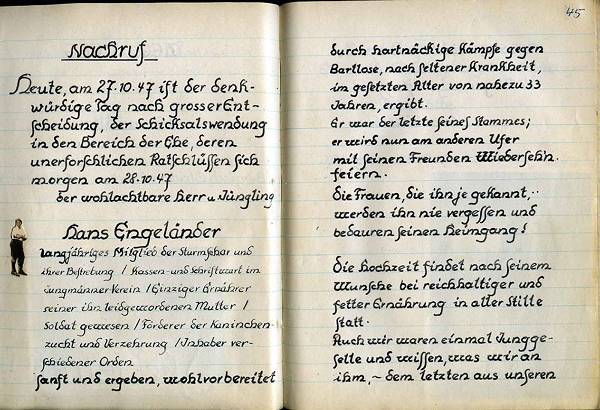 Nachruf
Heute, am 27.10.47 ist der denk-
würdige Tag nach grosser Ent-
scheidung, der Schicksalswendung
in den Bereich der Ehe, deren
unerforschlichen Ratschlüssen sich
morgen am 28.10.47
der wohlachtbare Herr u. Jüngling
Hans Engeländer
Langjähriges Mitglied der Sturmschar und
ihrer Bestretung / Kassen- und Schriftwart im
Jungmänner Verein / Einziger Ernährer
seiner ihn leidgewordenen Mutter /
Soldat gewesen / Förderer der Kaninchen-
zucht und Verzehrung / Inhaber ver-
schiedener Orden
sanft und ergeben, wohlvorbereitet
45
durch hartnäckige Kämpfe gegen
Bartlose, nach seltener Krankheit,
im gesetzten Alter von nahezu 33
Jahren, ergibt.
Er war der letzte seines Stammes;
er wird nun am anderen Ufer
mit seinen Freunden Wiederseh'n
feiern.
Die Frauen, die ihn je gekannt,
werden ihn nie vergessen und
bedauren seinen Heimgang!
Die Hochzeit findet nach seinem
Wunsche bei reichhaltiger und
fetter Ernährung in aller Stille
statt.
Auch wir waren einmal Jungge-
selle und wissen, was wir an
ihm, ~ dem letzten aus unseren